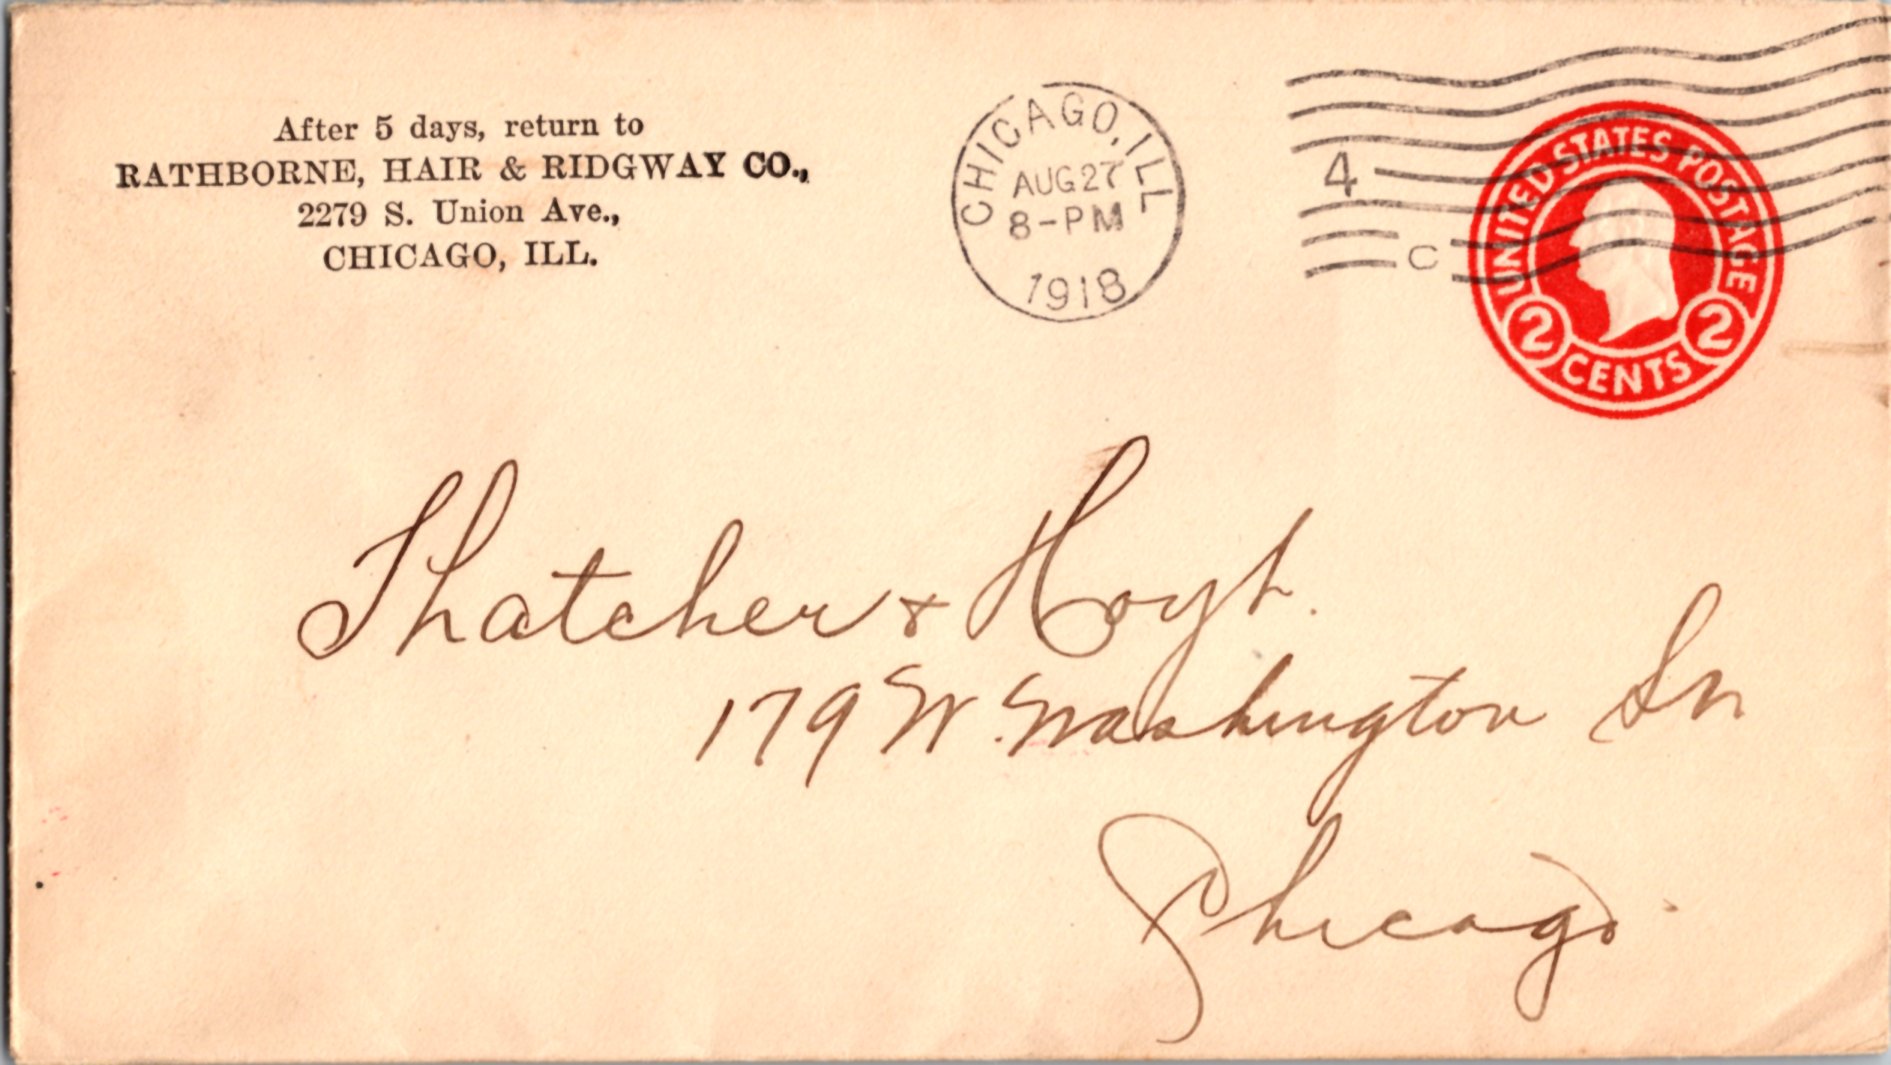 After 5 days, return to
RATHBORNE, HAIR & RIDGWAY CO.,
2279 S. Union Ave.,
CHICAGO, ILL.
CHICAGO, ILL
AUG 27
8-PM
1918
4
C
UNITED STATES POSTAGE
2 CENTS 2
Thatcher & Hoyt.
179 W. Washington
Chicago.